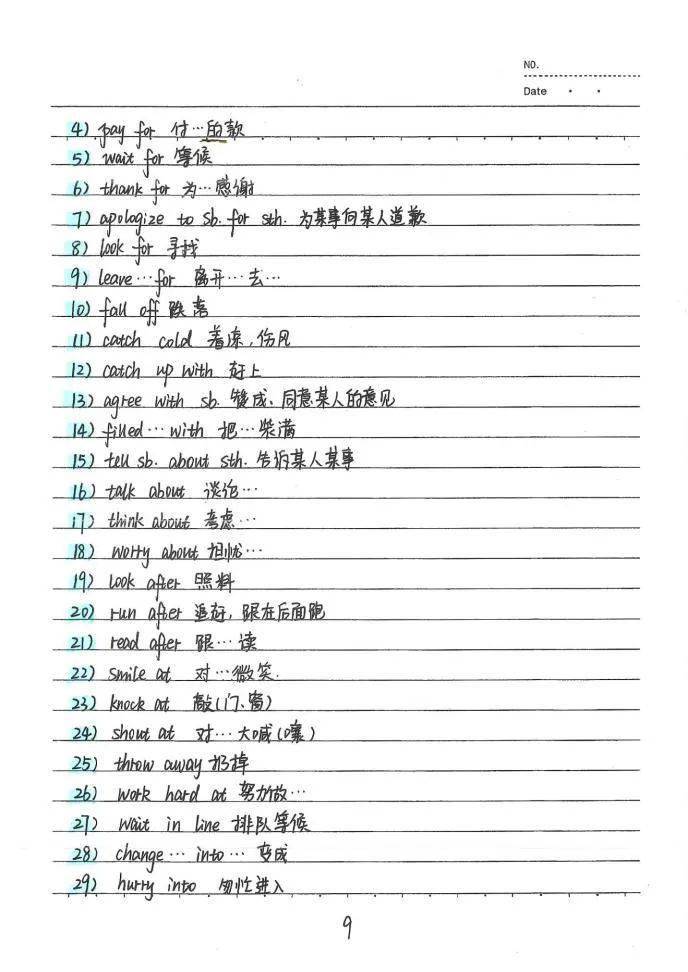 NO.
Date
4) pay for 付…的款
5) wait for 等候
6) thank for 为…感谢
7) apologize to sb. for sth. 为某事向某人道歉
8) look for 寻找
9) leave…for 离开…去…
10) fall off 跌落
11) catch cold 着凉,伤风
12) catch up with 赶上
13) agree with sb. 赞成、同意某人的意见
14) filled…with 把…装满
15) tell sb. about sth. 告诉某人某事
16) talk about 谈论…
17) think about 考虑…
18) worry about 担忧…
19) look after 照料
20) run after 追赶,跟在后面跑
21) read after 跟…读
22) smile at 对…微笑.
23) knock at 敲(门、窗)
24) shout at 对…大喊(嚷)
25) throw away 扔掉
26) work hard at 努力做…
27) wait in line 排队等候
28) change…into… 变成
29) hurry into 匆忙进入
9